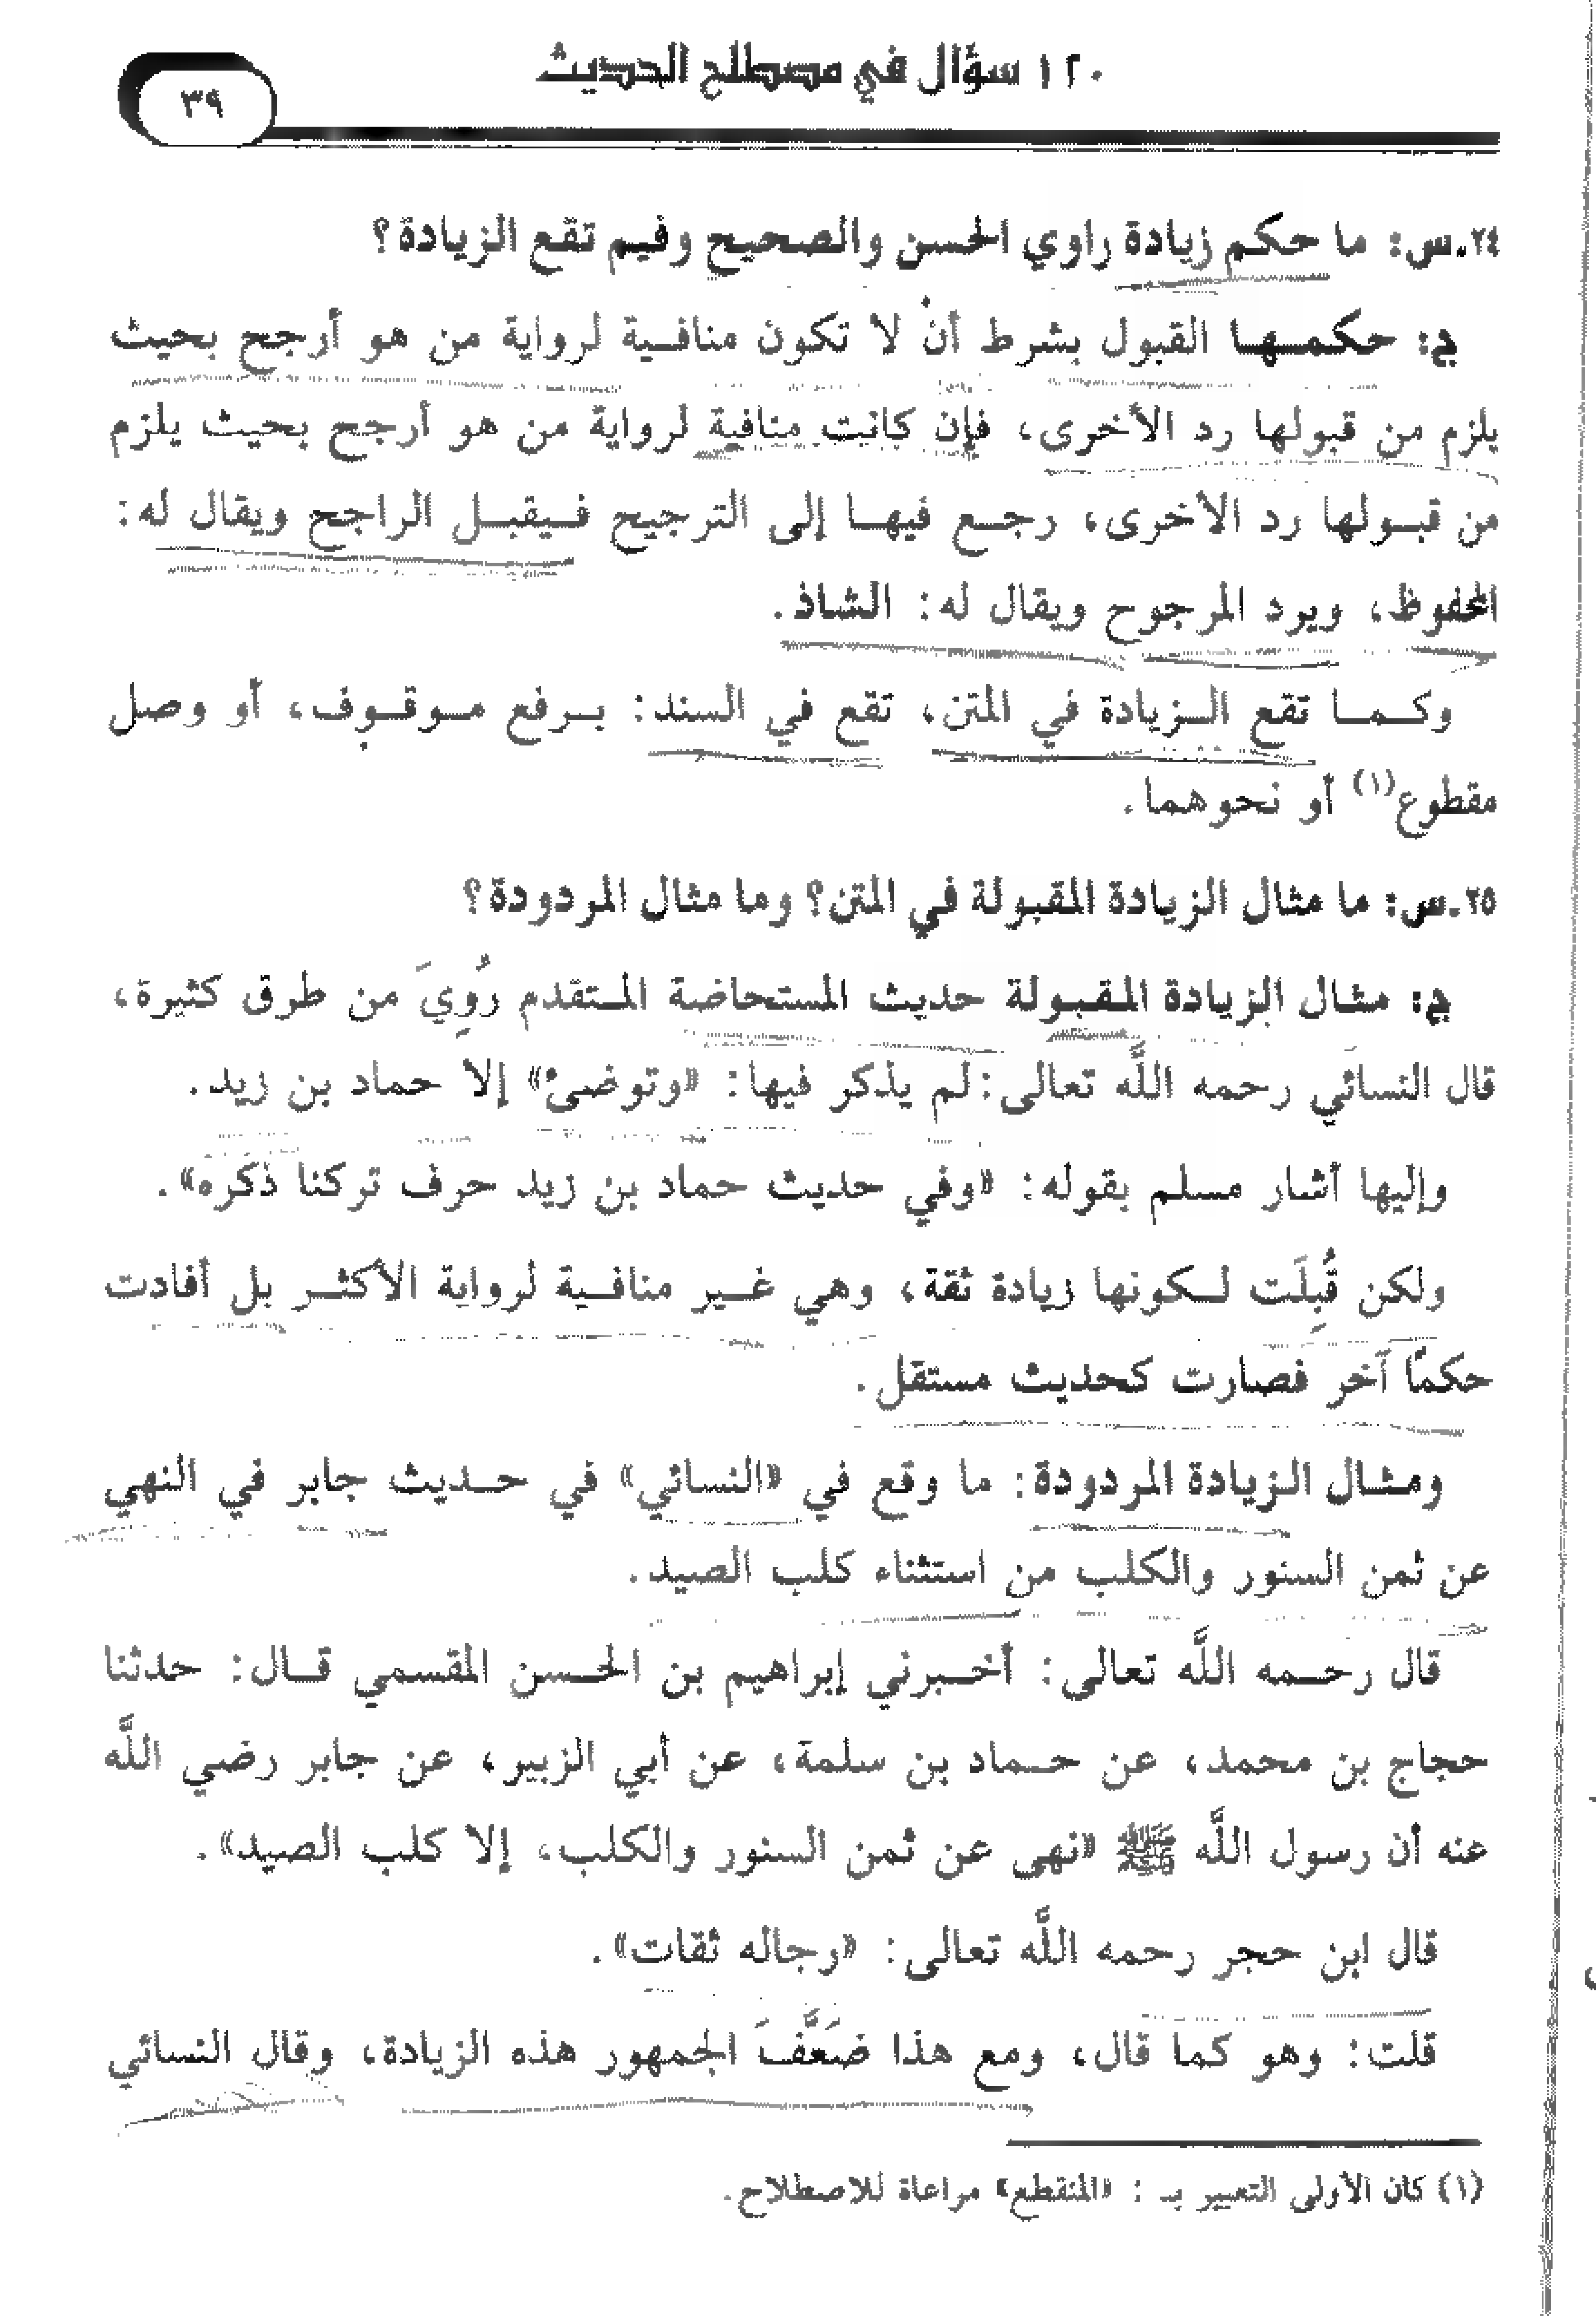 ١٢٠ سؤال في مصطلح الحديث
٣٩
٢٤.س: ما حكم زيادة راوي الحسن والصحيح وفيم تقع الزيادة؟
ج: حكمـها القبول بشرط أنْ لا تكون منافـية لرواية من هو أرجح بحيث
يلزم من قبولها رد الأخرى، فإن كانت منافية لرواية من هو أرجح بحيث يلزم
من قبـولها رد الأخرى، رجـع فيهـا إلى الترجيح فـيقبـل الراجح ويقال له:
المحفوظ، ويرد المرجوح ويقال له: الشاذ.
وكـمـا تقع الـزيادة في المتن، تقع في السند: بـرفع مـوقـوف، أو وصل
مقطوع(١) أو نحوهما.
٢٥.س: ما مثال الزيادة المقبولة في المتن؟ وما مثال المردودة؟
ج: مثـال الزيادة المـقبـولة حديث المستحاضة المـتقدم رُوِيَ من طرق كثيرة،
قال النسائي رحمه اللَّه تعالى: لم يذكر فيها: «وتوضئ» إلا حماد بن زيد.
وإليها أشار مسلم بقوله: «وفي حديث حماد بن زيد حرف تركنا ذكره».
ولكن قُبِلَت لـكونها زيادة ثقة، وهي غـير منافـية لرواية الأكثـر بل أفادت
حكمًا آخر فصارت كحديث مستقل.
ومـثـال الـزيادة المردودة: ما وقع في «النسائي» في حـديث جابر في النهي
عن ثمن السنور والكلب من استثناء كلب الصيد.
قال رحـمه اللَّه تعالى: أخـبرني إبراهيم بن الحـسن المقسمي قـال: حدثنا
حجاج بن محمد، عن حـماد بن سلمة، عن أبي الزبير، عن جابر رضي اللَّه
عنه أن رسول اللَّه ﷺ «نهى عن ثمن السنور والكلب، إلا كلب الصيد».
قال ابن حجر رحمه اللَّه تعالى: «رجاله ثقات».
قلت: وهو كما قال، ومع هذا ضَعَّفَ الجمهور هذه الزيادة، وقال النسائي
(١) كان الأولى التعبير بـ : «المنقطع» مراعاة للاصطلاح.